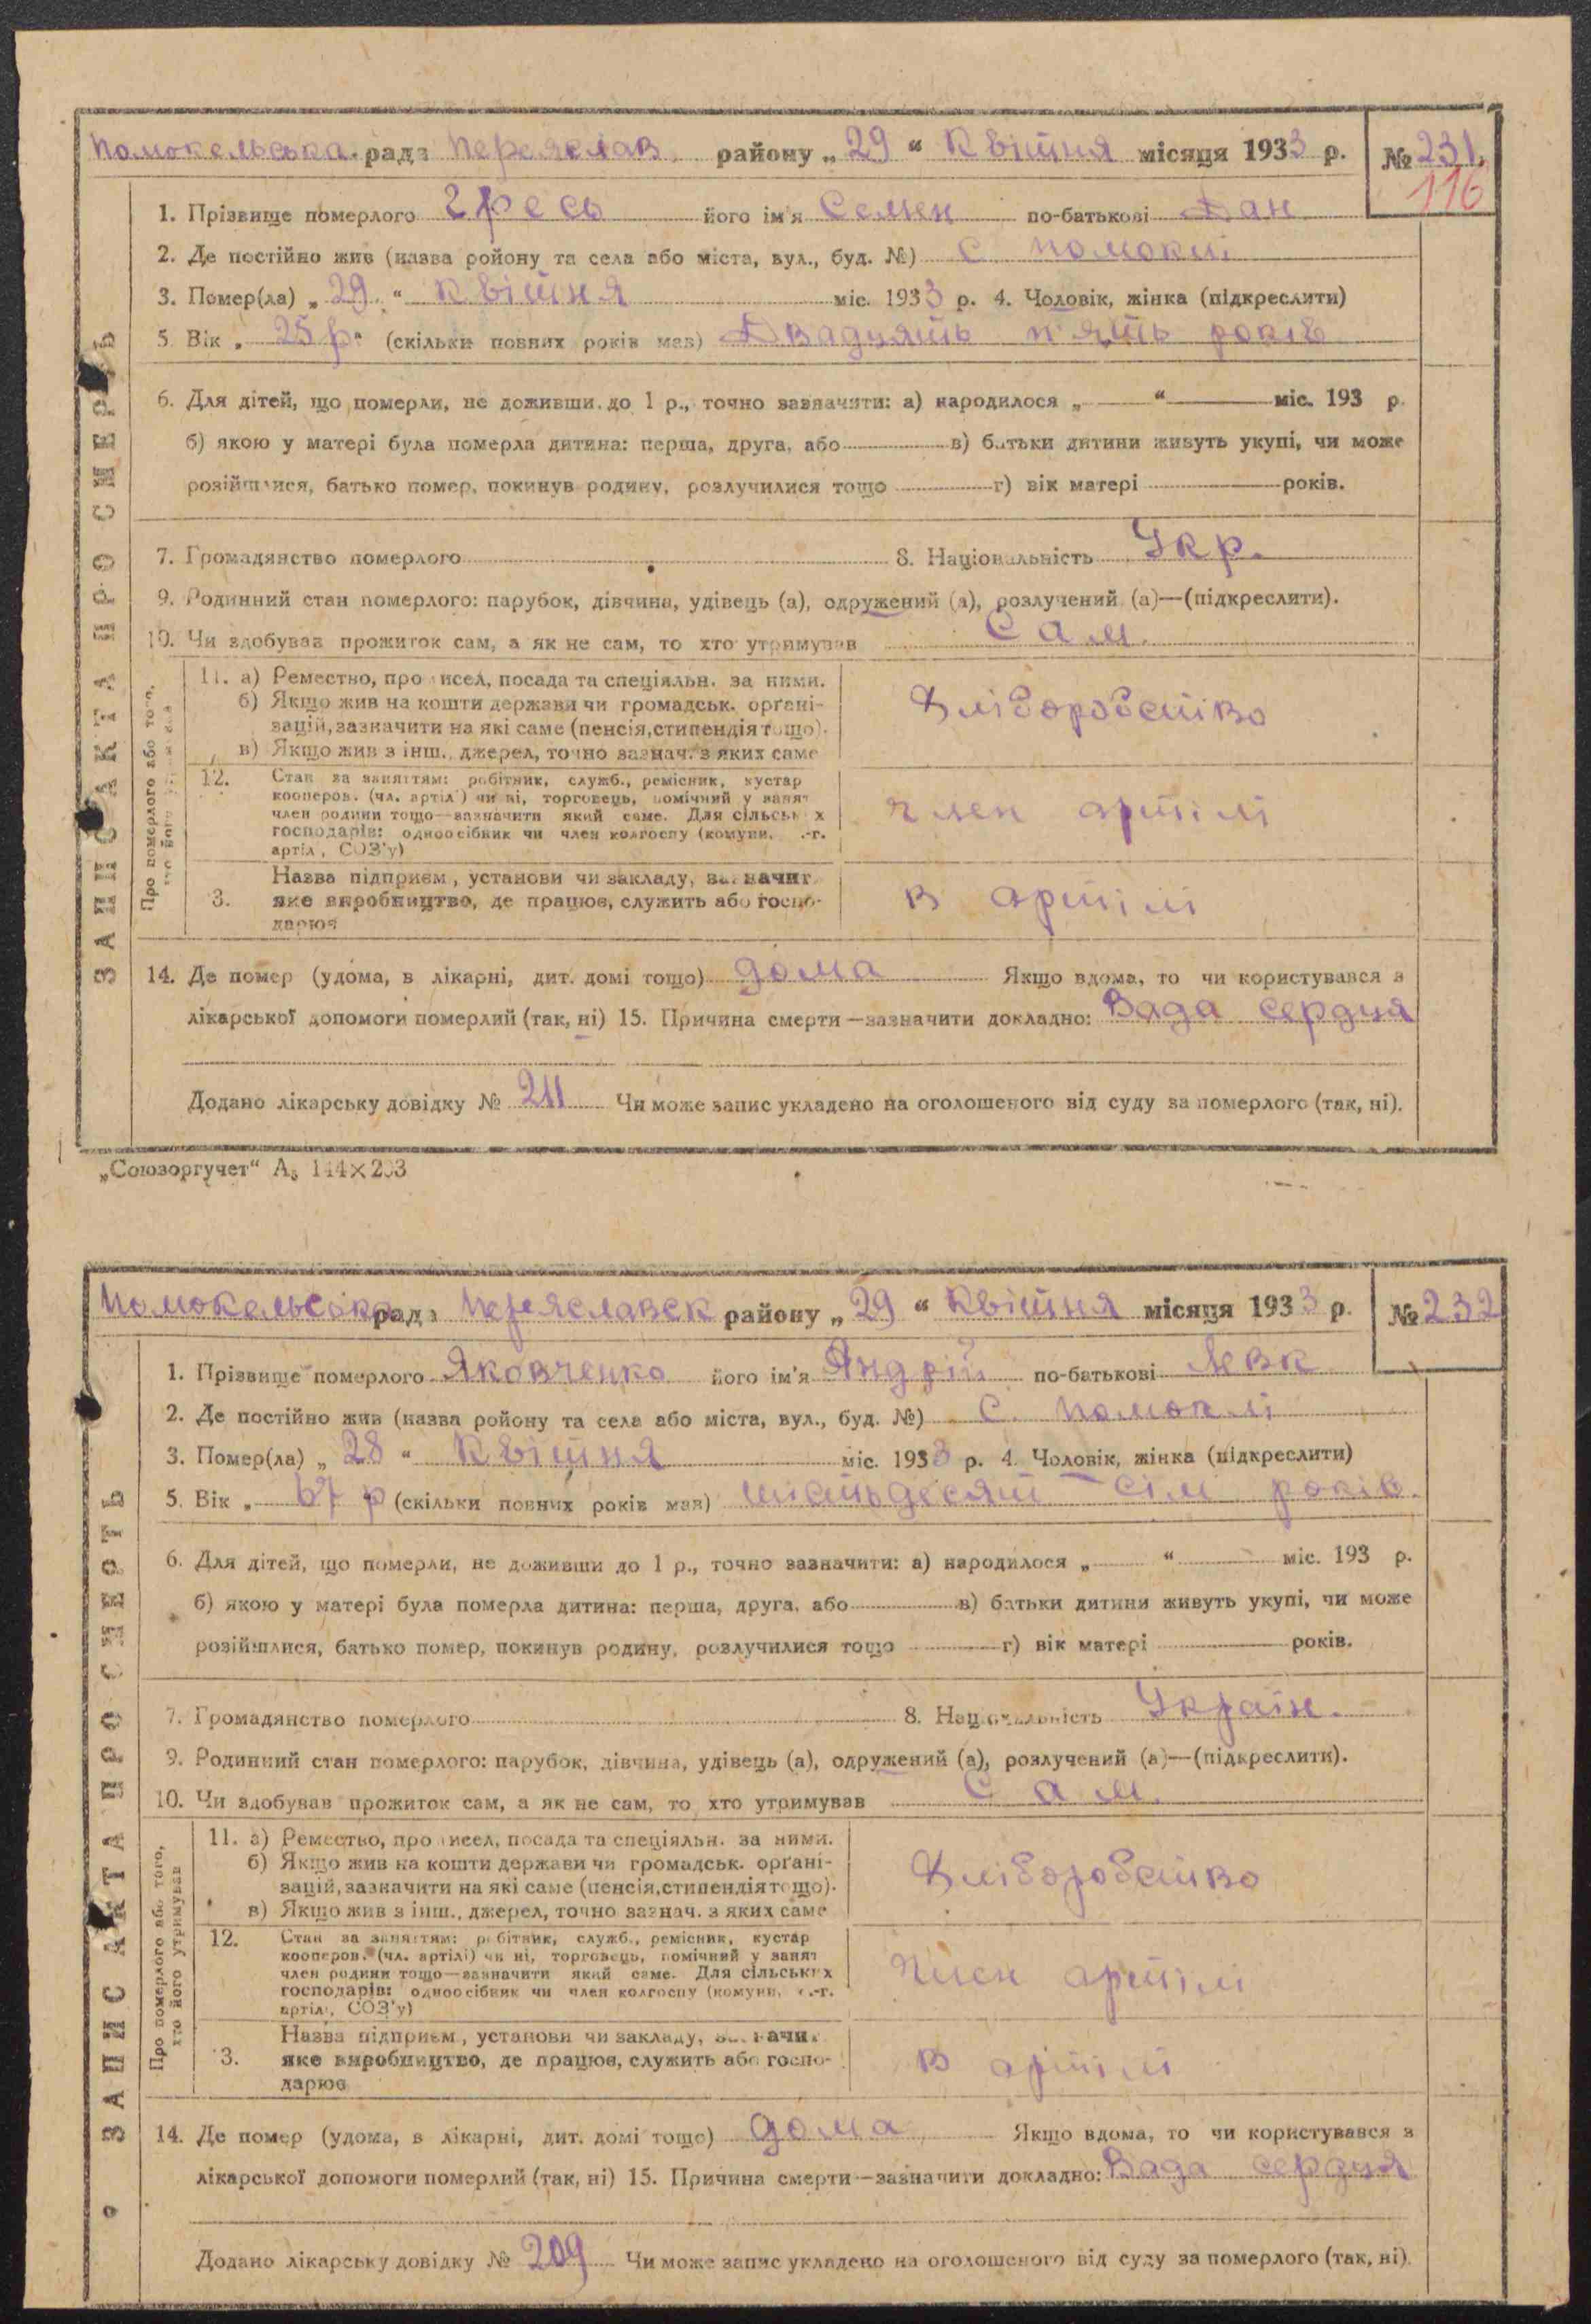 Помокельська рада Переяслав. району „29“ Квітня місяця 1933 р. № 231.
116
1. Прізвище померлого Гресь його ім'я Семен по-батькові Дан
2. Де постійно жив (назва ройону та села або міста, вул., буд. №) С. Помоклі
3. Помер(ла) „29.“ Квітня міс. 1933 р. 4. Чоловік, жінка (підкреслити)
5. Вік „25 р.“ (скільки повних років мав) Двадцять п'ять років
6. Для дітей, що померли, не доживши до 1 р., точно зазначити: а) народилося „ “ міс. 193 р.
б) якою у матері була померла дитина: перша, друга, або в) батьки дитини живуть укупі, чи може
розійшлися, батько помер, покинув родину, розлучилися тощо г) вік матері років.
7. Громадянство померлого 8. Національність Укр.
9. Родинний стан померлого: парубок, дівчина, удівець (а), одружений (а), розлучений (а)—(підкреслити).
10. Чи здобував прожиток сам, а як не сам, то хто утримував Сам.
ЗАПИС АКТА ПРО СМЕРТЬ
Про померлого або того,
хто його утримував
11. а) Ремество, промисел, посада та спеціяльн. за ними.
б) Якщо жив на кошти держави чи громадськ. орґані-
зацій, зазначити на які саме (пенсія, стипендія тощо).
в) Якщо жив з інш., джерел, точно зазнач. з яких саме
Хліборобство
12. Стан за заняттям: робітник, служб., ремісник, кустар
кооперов. (чл. артілі) чи ні, торговець, помічний у занят
член родини тощо—зазначити який саме. Для сільських
господарів: одноосібник чи член колгоспу (комуни, с.-г.
артіл , СОЗ'у)
член артілі
13. Назва підприєм., установи чи закладу, зазначит.
яке виробництво, де працює, служить або госпо-
дарює
в артілі
14. Де помер (удома, в лікарні, дит. домі тощо) дома Якщо вдома, то чи користувався з
лікарської допомоги померлий (так, ні) 15. Причина смерти—зазначити докладно: Вада сердця
Додано лікарську довідку № 211 Чи може запис укладено на оголошеного від суду за померлого (так, ні).
„Союзоргучет“ А₅ 144×203
Помокельська рада Переяславск району „29“ Квітня місяця 1933 р. № 232
1. Прізвище померлого Яковченко його ім'я Андрій по-батькові Левк
2. Де постійно жив (назва ройону та села або міста, вул., буд. №) С. Помоклі
3. Помер(ла) „28“ Квітня міс. 1933 р. 4. Чоловік, жінка (підкреслити)
5. Вік „67 р“ (скільки повних років мав) шистьдесят сім років.
6. Для дітей, що померли, не доживши до 1 р., точно зазначити: а) народилося „ “ міс. 193 р.
б) якою у матері була померла дитина: перша, друга, або в) батьки дитини живуть укупі, чи може
розійшлися, батько помер, покинув родину, розлучилися тощо г) вік матері років.
7. Громадянство померлого 8. Національність Україн.
9. Родинний стан померлого: парубок, дівчина, удівець (а), одружений (а), розлучений (а)—(підкреслити).
10. Чи здобував прожиток сам, а як не сам, то хто утримував Сам.
ЗАПИС АКТА ПРО СМЕРТЬ
Про померлого або того,
хто його утримував
11. а) Ремество, промисел, посада та спеціяльн. за ними.
б) Якщо жив на кошти держави чи громадськ. орґані-
зацій, зазначити на які саме (пенсія, стипендія тощо).
в) Якщо жив з інш., джерел, точно зазнач. з яких саме
Хліборобство
12. Стан за заняттям: робітник, служб., ремісник, кустар
кооперов. (чл. артілі) чи ні, торговець, помічний у занят
член родини тощо—зазначити який саме. Для сільських
господарів: одноосібник чи член колгоспу (комуни, с.-г.
артіл , СОЗ'у)
член артілі
13. Назва підприєм., установи чи закладу, зазначит.
яке виробництво, де працює, служить або госпо-
дарює
в артілі
14. Де помер (удома, в лікарні, дит. домі тощо) дома Якщо вдома, то чи користувався з
лікарської допомоги померлий (так, ні) 15. Причина смерти—зазначити докладно: Вада сердця
Додано лікарську довідку № 209 Чи може запис укладено на оголошеного від суду за померлого (так, ні).